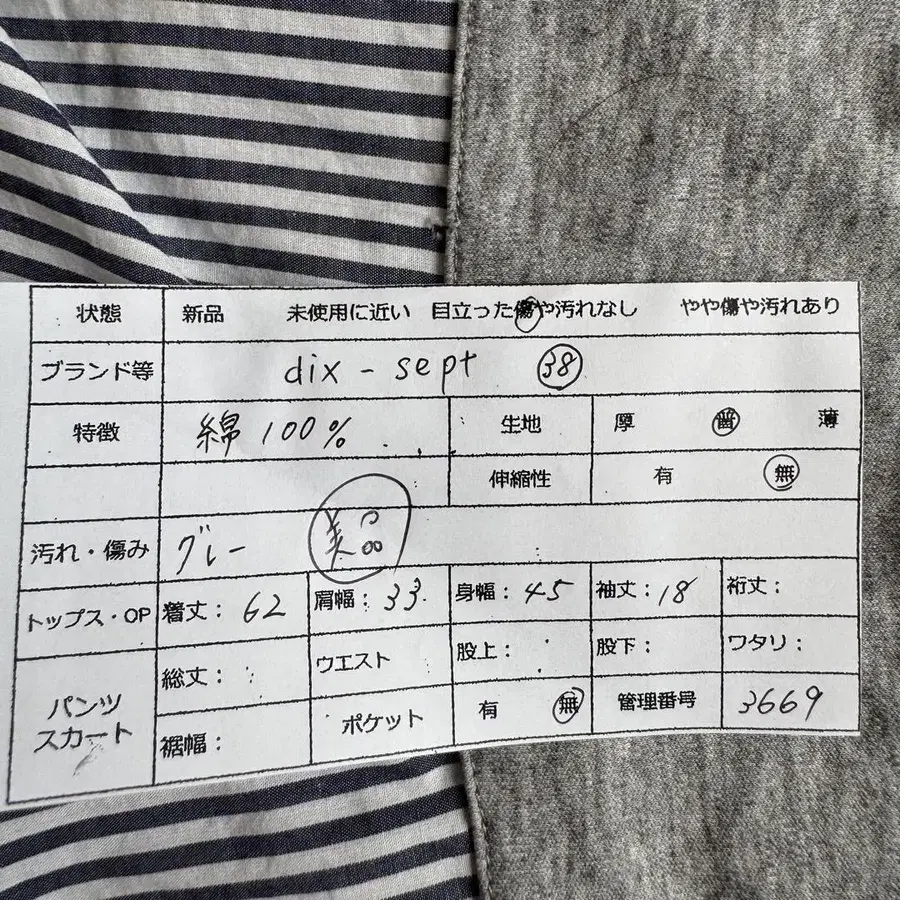 状態 新品 未使用に近い 目立った傷や汚れなし やや傷や汚れあり
ブランド等 dix-sept 38
特徴 綿100% 生地 厚 普 薄
伸縮性 有 無
汚れ・傷み グレー 美品
トップス・OP 着丈: 62 肩幅: 33 身幅: 45 袖丈: 18 裄丈:
パンツ スカート 総丈: ウエスト 股上: 股下: ワタリ:
裾幅: ポケット 有 無 管理番号 3669